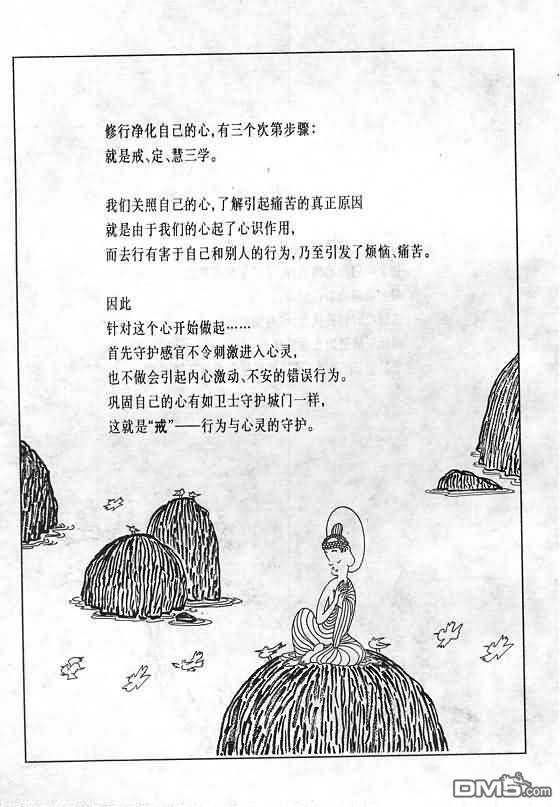 修行净化自己的心，有三个次第步骤：
就是戒、定、慧三学。
我们关照自己的心，了解引起痛苦的真正原因
就是由于我们的心起了心识作用，
而去行有害于自己和别人的行为，乃至引发了烦恼、痛苦。
因此
针对这个心开始做起……
首先守护感官不令刺激进入心灵，
也不做会引起内心激动、不安的错误行为。
巩固自己的心有如卫士守护城门一样，
这就是“戒”——行为与心灵的守护。
DM5.com